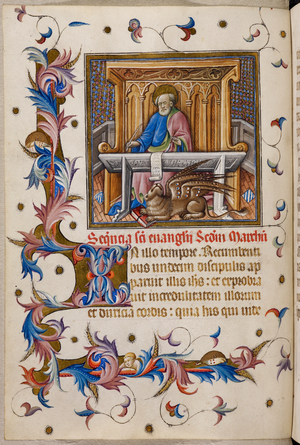 Sequẽcia sc̃i euangl̃ij Scđm Marchũ
IN illo tempore. Recumbenti
bus undecim discipulis ap
paruit illis ihs̃: et exproba
uit incredulitatem illorum
et duricia cordis: quia his qui uide